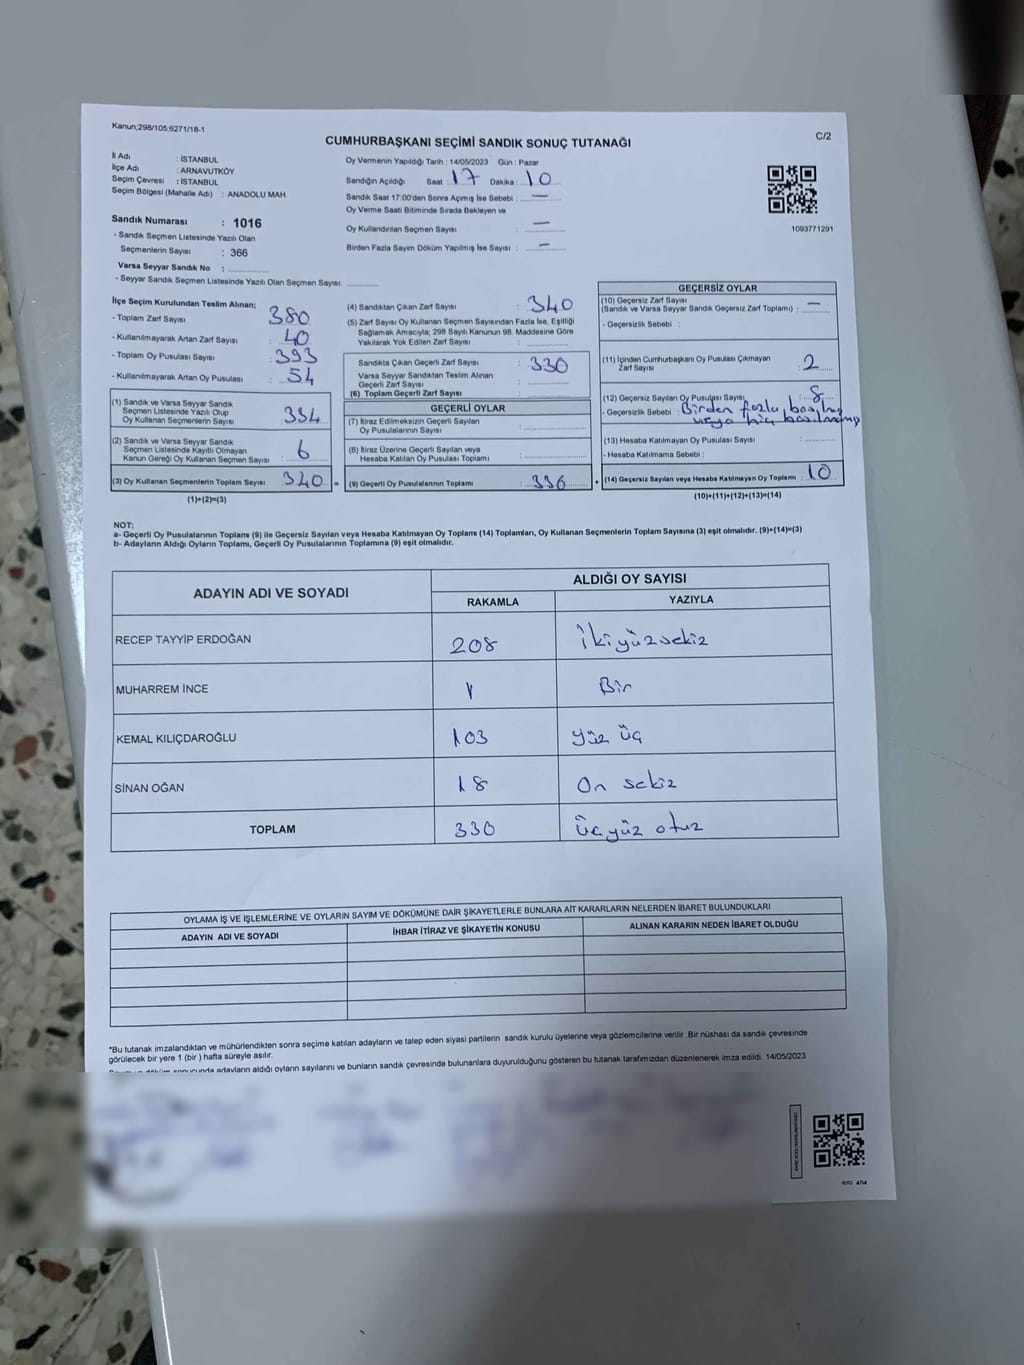 Kanun;298/105;6271/18-1
C/2
CUMHURBAŞKANI SEÇİMİ SANDIK SONUÇ TUTANAĞI
İl Adı : İSTANBUL
İlçe Adı : ARNAVUTKÖY
Seçim Çevresi : İSTANBUL
Seçim Bölgesi (Mahalle Adı) : ANADOLU MAH.
Sandık Numarası : 1016
- Sandık Seçmen Listesinde Yazılı Olan
Seçmenlerin Sayısı : 366
Varsa Seyyar Sandık No :
- Seyyar Sandık Seçmen Listesinde Yazılı Olan Seçmen Sayısı:
Oy Vermenin Yapıldığı Tarih : 14/05/2023 Gün : Pazar
Sandığın Açıldığı Saat : 17 Dakika : 10
Sandık Saat 17:00'den Sonra Açımış İse Sebebi : —
Oy Verme Saati Bitiminde Sırada Bekleyen ve
Oy Kullandırılan Seçmen Sayısı : —
Birden Fazla Sayım Döküm Yapılmış İse Sayısı : —
1093771291
İlçe Seçim Kurulundan Teslim Alınan;
- Toplam Zarf Sayısı : 380
- Kullanılmayarak Artan Zarf Sayısı : 40
- Toplam Oy Pusulası Sayısı : 393
- Kullanılmayarak Artan Oy Pusulası : 54
(1) Sandık ve Varsa Seyyar Sandık
Seçmen Listesinde Yazılı Olup
Oy Kullanan Seçmenlerin Sayısı : 334
(2) Sandık ve Varsa Seyyar Sandık
Seçmen Listesinde Kayıtlı Olmayan
Kanun Gereği Oy Kullanan Seçmen Sayısı : 6
(3) Oy Kullanan Seçmenlerin Toplam Sayısı : 340
(1)+(2)=(3)
(4) Sandıktan Çıkan Zarf Sayısı : 340
(5) Zarf Sayısı Oy Kullanan Seçmen Sayısından Fazla İse, Eşitliği
Sağlamak Amacıyla; 298 Sayılı Kanunun 98. Maddesine Göre
Yakılarak Yok Edilen Zarf Sayısı :
Sandıkta Çıkan Geçerli Zarf Sayısı : 330
Varsa Seyyar Sandıktan Teslim Alınan
Geçerli Zarf Sayısı :
(6) Toplam Geçerli Zarf Sayısı :
GEÇERLİ OYLAR
(7) İtiraz Edilmeksizin Geçerli Sayılan
Oy Pusulalarının Sayısı :
(8) İtiraz Üzerine Geçerli Sayılan veya
Hesaba Katılan Oy Pusulası Toplamı :
= (9) Geçerli Oy Pusulalarının Toplamı :
GEÇERSİZ OYLAR
(10) Geçersiz Zarf Sayısı
(Sandık ve Varsa Seyyar Sandık Geçersiz Zarf Toplamı) : —
- Geçersizlik Sebebi :
(11) İçinden Cumhurbaşkanı Oy Pusulası Çıkmayan
Zarf Sayısı : 2
(12) Geçersiz Sayılan Oy Pusulası Sayısı : 8
- Geçersizlik Sebebi : Birden fazla
veya hiç
(13) Hesaba Katılmayan Oy Pusulası Sayısı :
- Hesaba Katılmama Sebebi :
+ (14) Geçersiz Sayılan veya Hesaba Katılmayan Oy Toplamı : 10
(10)+(11)+(12)+(13)=(14)
NOT:
a- Geçerli Oy Pusulalarının Toplamı (9) ile Geçersiz Sayılan veya Hesaba Katılmayan Oy Toplamı (14) Toplamları, Oy Kullanan Seçmenlerin Toplam Sayısına (3) eşit olmalıdır. (9)+(14)=(3)
b- Adayların Aldığı Oyların Toplamı, Geçerli Oy Pusulalarının Toplamına (9) eşit olmalıdır.
ADAYIN ADI VE SOYADI
ALDIĞI OY SAYISI
RAKAMLA YAZIYLA
RECEP TAYYİP ERDOĞAN 208 İkiyüzsekiz
MUHARREM İNCE 1 Bir
KEMAL KILIÇDAROĞLU 103 yüz üç
SİNAN OĞAN 18 On sekiz
TOPLAM 330 üçyüz otuz
OYLAMA İŞ VE İŞLEMLERİNE VE OYLARIN SAYIM VE DÖKÜMÜNE DAİR ŞİKAYETLERLE BUNLARA AİT KARARLARIN NELERDEN İBARET BULUNDUKLARI
ADAYIN ADI VE SOYADI İHBAR İTİRAZ VE ŞİKAYETİN KONUSU ALINAN KARARIN NEDEN İBARET OLDUĞU
*Bu tutanak imzalandıktan ve mühürlendikten sonra seçime katılan adayların ve talep eden siyasi partilerin sandık kurulu üyelerine veya gözlemcilerine verilir. Bir nüshası da sandık çevresinde
görülecek bir yere 1 (bir ) hafta süreyle asılır.
adayların aldığı oyların sayılarını ve bunların sandık çevresinde bulunanlara duyurulduğunu gösteren bu tutanak tarafımızdan düzenlenerek imza edildi. 14/05/2023